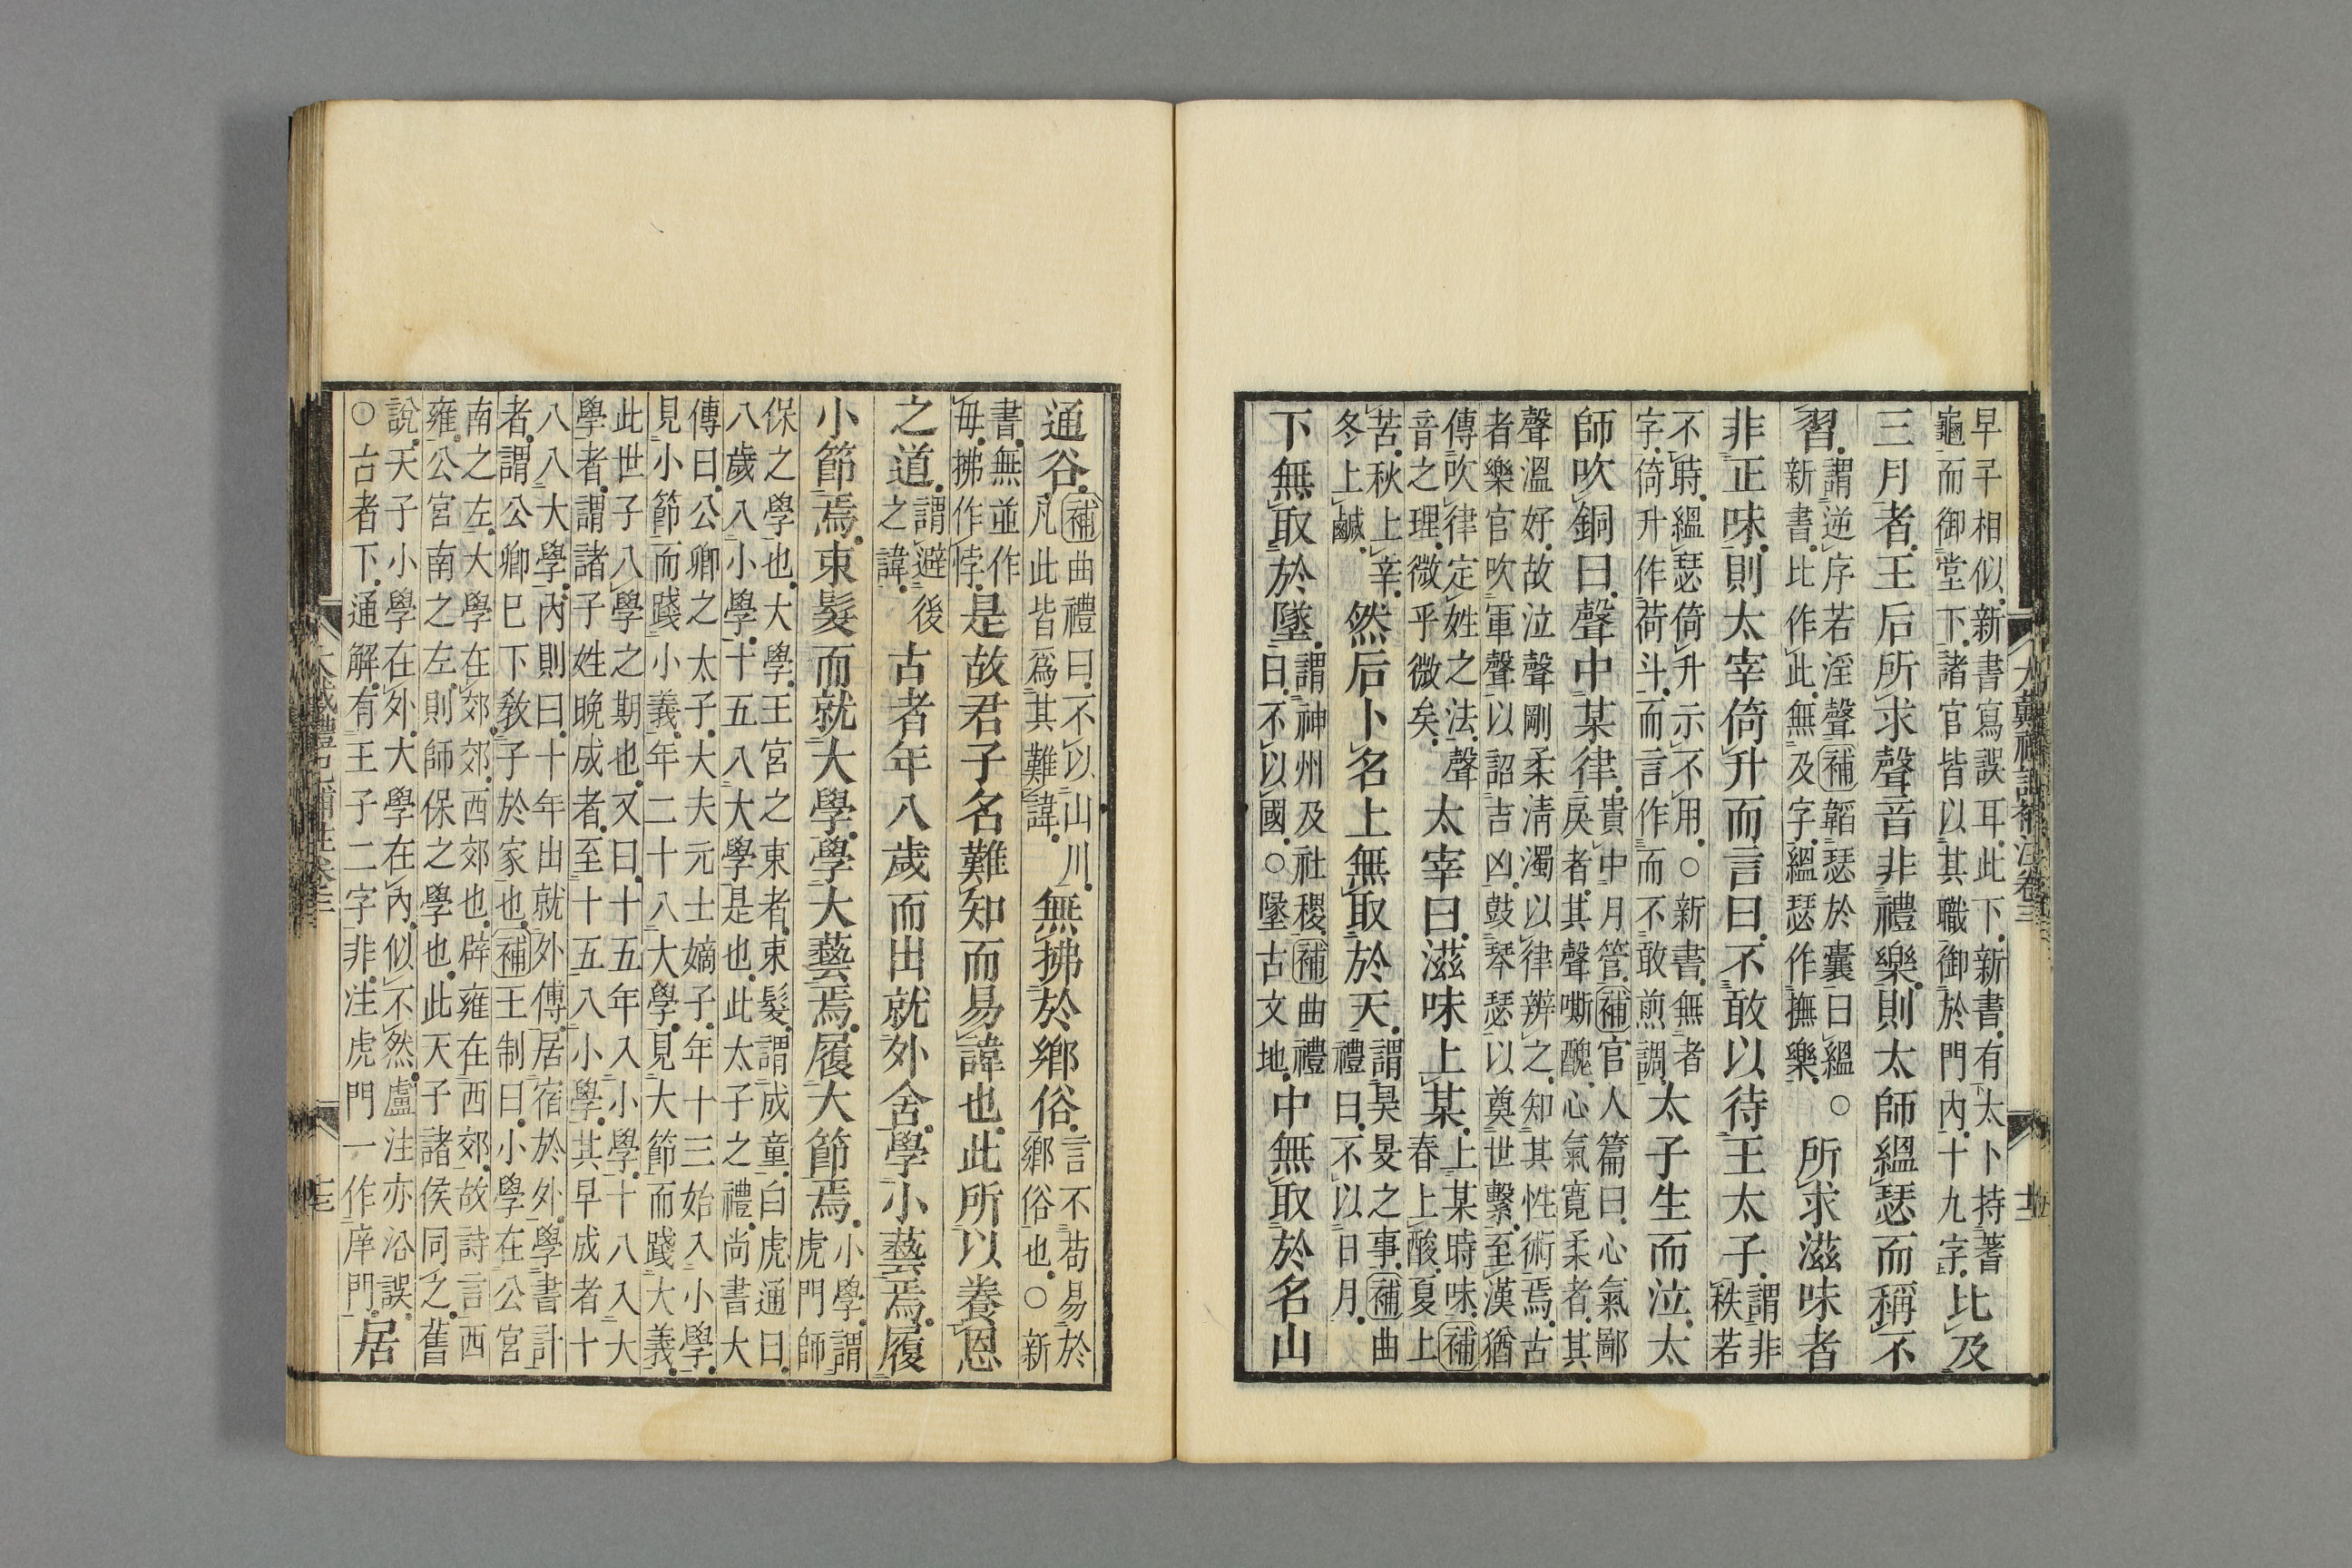 早字相似新書寫誤耳此下新書有太卜持蓍
龜而御堂下諸官皆以其職御於門內十九字比及
三月者王后所求聲音非禮樂則太師縕瑟而稱不
習謂逆序若淫聲補韜瑟於囊曰縕○
新書比作此無及字縕瑟作撫樂所求滋味者
非正味則太宰倚升而言曰不敢以待王太子謂非
秩若
不時縕瑟倚升示不用○新書無者
字倚升作荷斗而言作而不敢煎調太子生而泣太
師吹銅曰聲中某律貴中月管補官人篇曰心氣鄙
戾者其聲嘶醜心氣寬柔者其
聲溫好故泣聲剛柔淸濁以律辨之知其性術焉古
者樂官吹軍聲以詔吉凶鼓琴瑟以奠世繫至漢猶
傳吹律定姓之法聲
音之理微乎微矣太宰曰滋味上某上某時味補
春上酸夏上
苦秋上辛
冬上鹹然后卜名上無取於天謂昊旻之事補曲
禮曰不以日月
下無取於墜謂神州及社稷補曲禮
曰不以國○墜古文地中無取於名山
通谷補曲禮曰不以山川
凡此皆爲其難諱無拂於鄕俗言不苟易於
鄕俗也○新
書無並作
毋拂作悖是故君子名難知而易諱也此所以養恩
之道謂避後
之諱古者年八歲而出就外舍學小藝焉履
小節焉束髮而就大學學大藝焉履大節焉小學謂
虎門師
保之學也大學王宮之東者束髮謂成童白虎通曰
八歲入小學十五入大學是也此太子之禮尚書大
傳曰公卿之太子大夫元士嫡子年十三始入小學
見小節而踐小義年二十入大學見大節而踐大義
此世子入學之期也又曰十五年入小學十八入大
學者謂諸子姓晚成者至十五入小學其早成者十
八入大學內則曰十年出就外傅居宿於外學書計
者謂公卿巳下敎子於家也補王制曰小學在公宮
南之左大學在郊郊西郊也辟雍在西郊故詩言西
雍公宮南之左則師保之學也此天子諸侯同之舊
說天子小學在外大學在內似不然盧注亦沿誤
○古者下通解有王子二字非注虎門一作庠門居